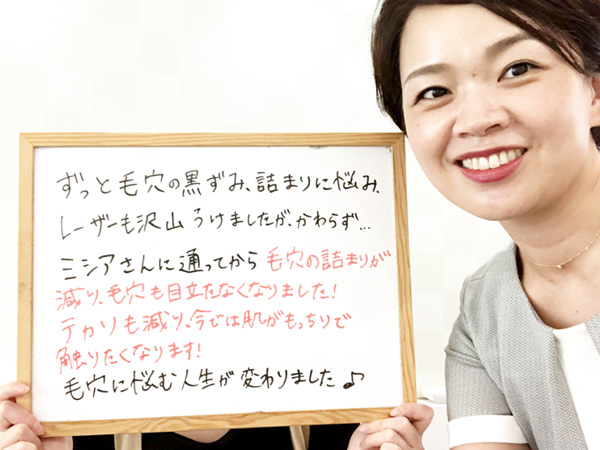 ずっと毛穴の黒ずみ、詰まりに悩み、
レーザーも沢山うけましたが、かわらず…
ミシアさんに通ってから毛穴の詰まりが
減り、毛穴も目立たなくなりました!
テカリも減り、今では肌がもっちりで
触りたくなります!
毛穴に悩む人生が変わりました♪